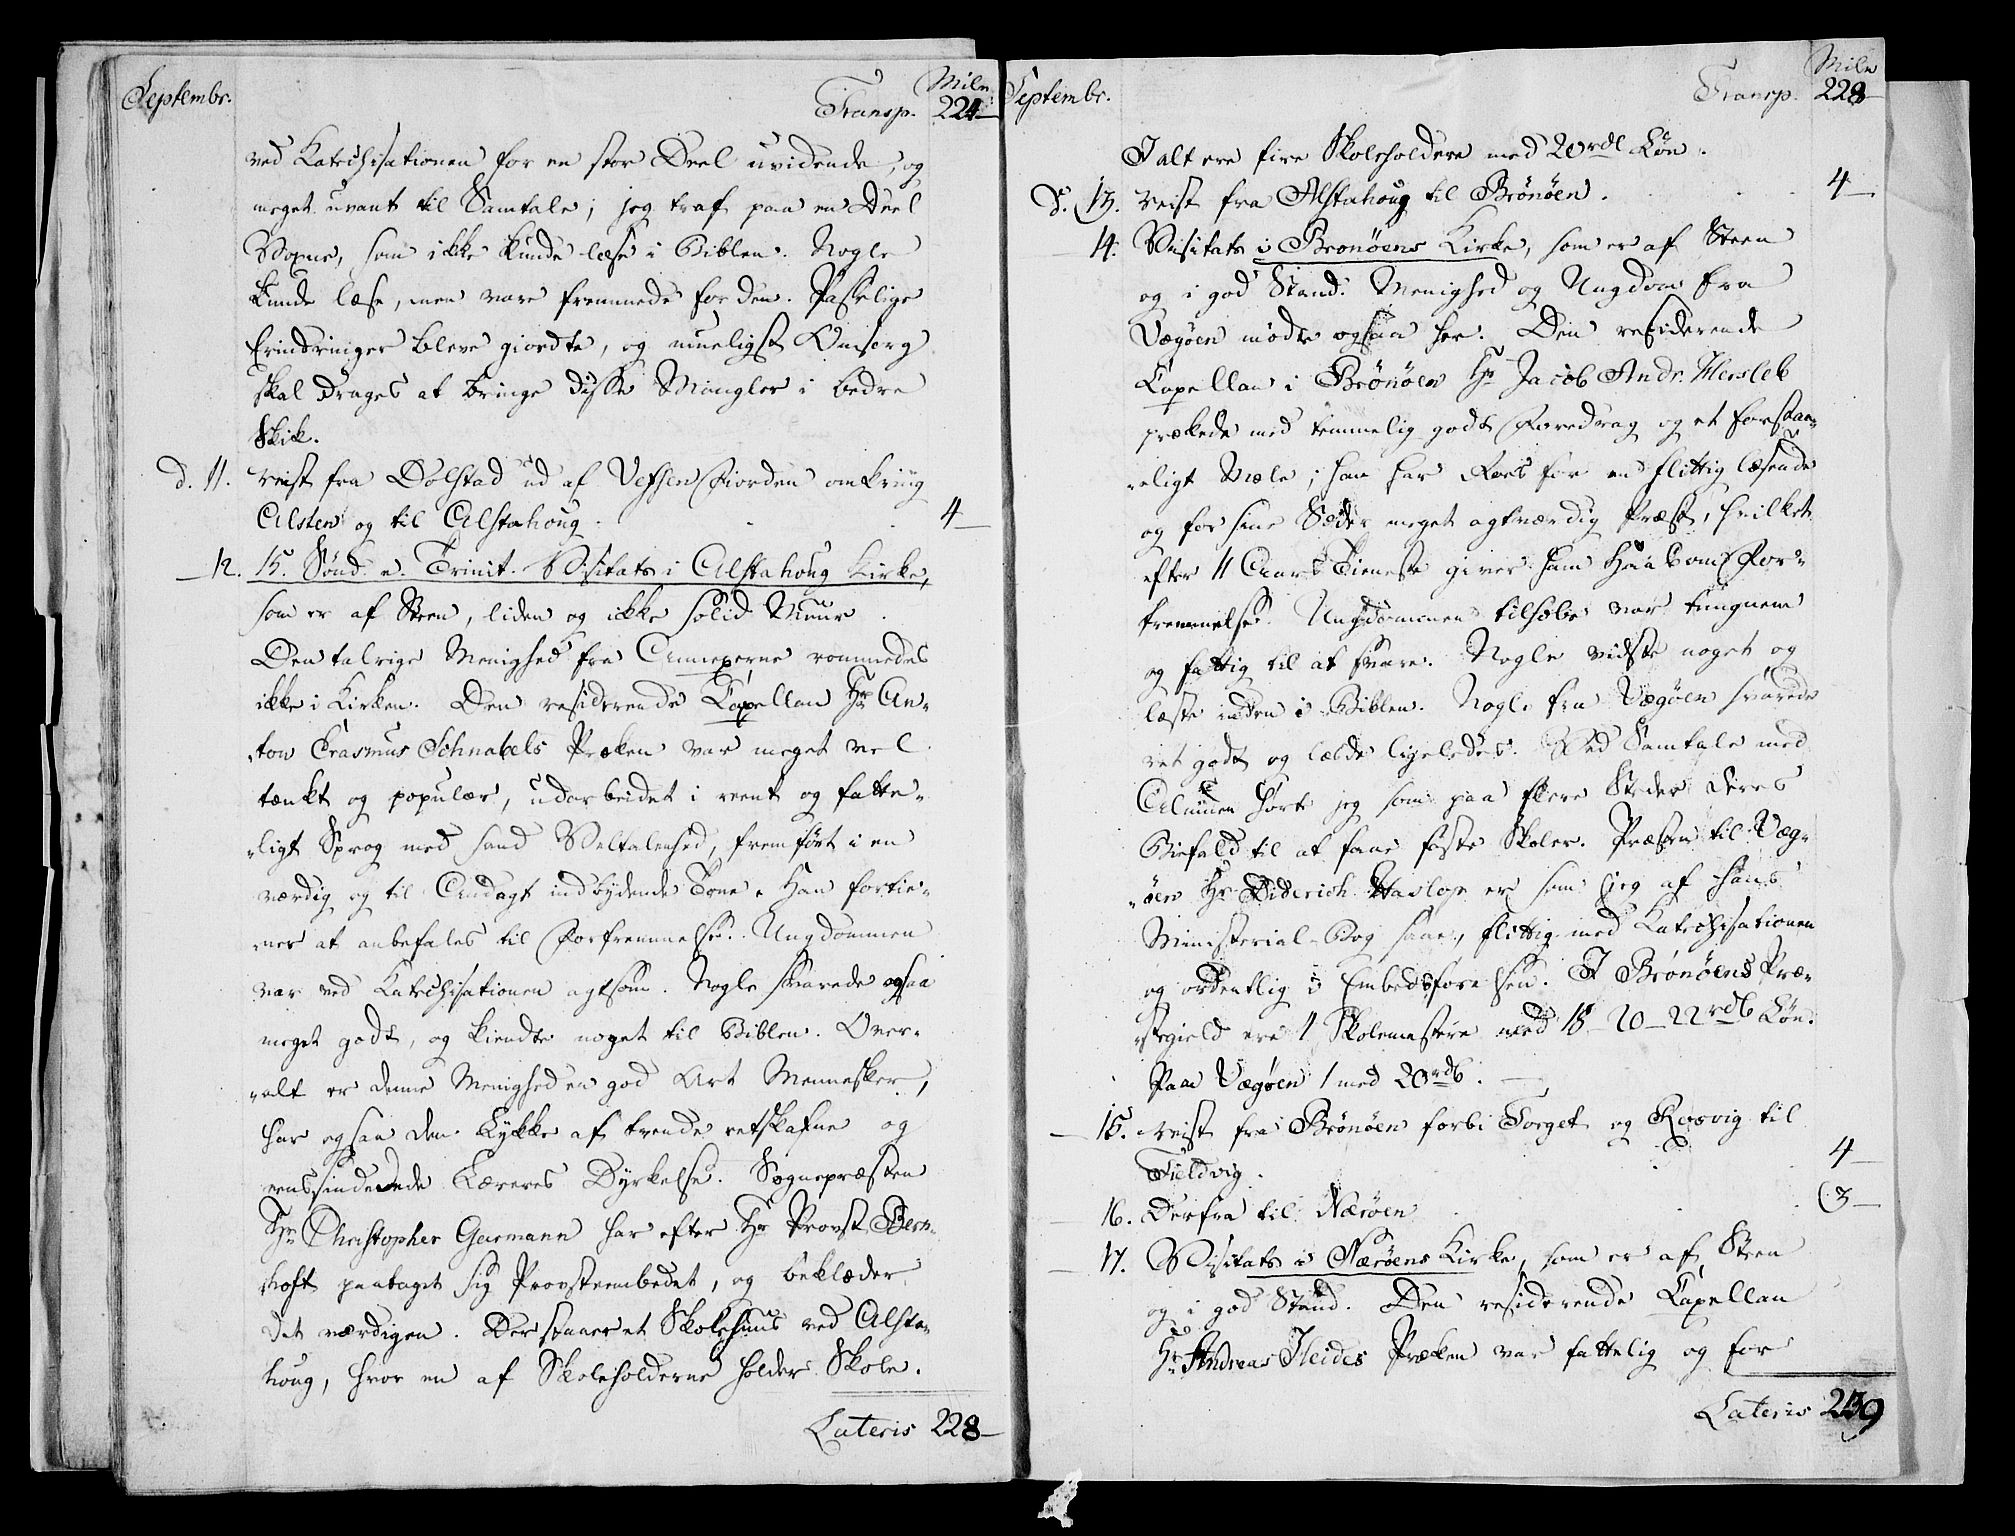 Septembr.
Mile
Transp. 224
ved Katechisationen for en stor Deel uvidende, og
meget uvant til Samtale; jeg traf paa en Deel
Voxne, som ikke kunde læse i Biblen. Nogle
kunde læse, men vare fremmede for den. Passelige
Erindringer bleve giordte, og mueligst Omsorg
skal drages at bringe disse Mangler i bedre
Skik.
d. 11. reist fra Dolstad ud af Vefsen Fiorden omkring
Alsten og til Alstahoug. 4
12. 15. Sønd. e. Trinit. Visitats i Alstahoug Kirke,
som er af Steen, liden og ikke solid Muur.
Den talrige Menighed fra Annexerne rommedes
ikke i Kirken. Den residerende Capellan Hr An-
ton Erasmus Schnabels Præken var meget vel
tænkt og populær, udarbeidet i reent og fatte-
ligt Sprog med sand Veltalenhed, fremført i en
værdig og til Andagt indbydende Tone. Han fortie-
ner at anbefales til Forfremmelse. Ungdommen
var ved Katechisationen agtsom. Nogle svarede ogsaa
meget godt, og kiendte noget til Biblen. Over-
alt er denne Menighed en god Art Mennesker,
har ogsaa den Lykke af tvende retskafne og
eenssindende Læreres Dyrkelse. Sognepræsten
Hr Christopher Garmann har efter Hr Provst Bern-
hoft paataget sig Provsteembedet, og beklæder
det værdigen. Der staaer et Skolehuus ved Alsta-
houg, hvor en af Skoleholderne holder Skole.
Lateris 228
Septembr.
Mile
Transp. 228
I alt ere fire Skoleholdere med 20 rdl Løn.
d. 13. reist fra Alstahoug til Brønøen. 4
14. Visitats i Brønøens Kirke, som er af Steen
og i god Stand. Menighed og Ungdom fra
Vegøen mødte ogsaa her. Den residerende
Capellan i Brønøen Hr Jacob Andr. Hersleb
prækede med temmelig godt Foredrag og et forstaae-
eligt Mæle; han har Roes for en flittig læsende
og for sine Sæder meget agtværdig Præst, hvilket
efter 11 Aars Tieneste giver ham Haab om For-
fremmelse. Ungdommen tilhobe var tungnem
og fattig til at svare. Nogle vidste noget og
læste inden i Biblen. Nogle fra Vegøen svarede
ret godt og læste ligeledes. Ved Samtale med
Almuen hørte jeg som paa flere Steder deres
Biefald til at faae faste Skoler. Præsten til Veg-
øen Hr Diderich Hasløp er som jeg af hans
Ministerial-Bog saae, flittig med Katechisationen
og ordentlig i Embedsførelsen. I Brønøens Præ-
stegield ere 4 Skolemestere med 18-20-22 rdl Løn.
Paa Vegøen 1 med 20 rdl.
15. reist fra Brønøen forbi Torget og til
Fieldvig. 4
16. Derfra til Nærøen. 3
17. Visitats i Nærøens Kirke, som er af Steen
og i god Stand. Den residerende Capellan
Hr Andreas Heides Præken var fattelig og for
Lateris 239